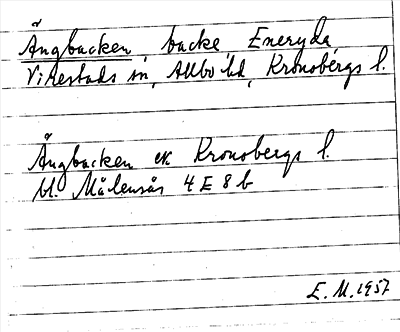 Ängbacken, backe, Eneryda,
Virestads sn, Allbo hd, Kronobergs l.
Ängbacken ek Kronobergs l.
bl. Målensås 4 E 8 b
E. M. 1957